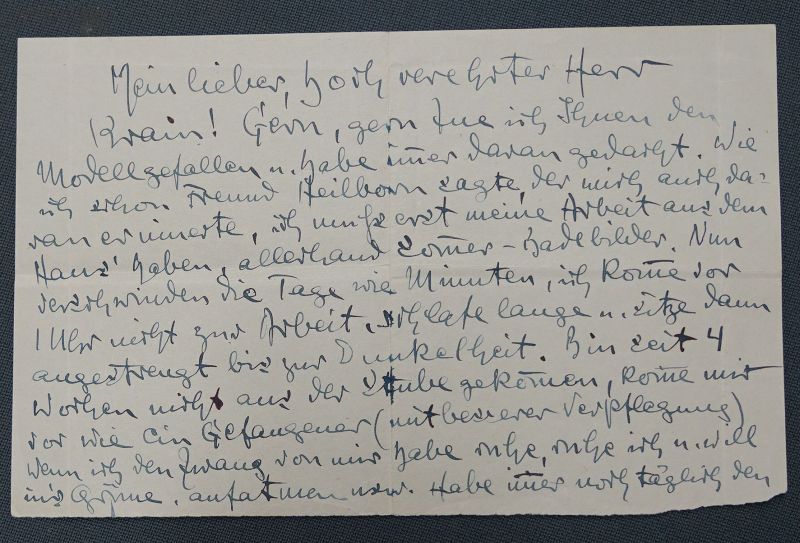 Mein lieber, hoch verehrter Herr
Krain! Gern, gern tue ich Ihnen den
Modellgefallen u. habe im̅er daran gedacht. Wie
ich schon Freund Heilborn sagte, der mich auch da-
ran erinnerte, ich muſs erst meine Arbeit aus dem
Haus' haben, allerhand Som̅er-Badebilder. Nun
verschwinden die Tage wie Minuten, ich kom̅e vor
1 Uhr nicht zur Arbeit, schlafe lange u. sitze dann
angestrengt bis zur Dunkelheit. Bin seit 4
Wochen nicht aus der Stube gekom̅en, kom̅e mir
vor wie ein Gefangener (mit besserer Verpflegung)
wenn ich den Zwang von mir habe ruhe, ruhe ich u. will
mir aufatmen usw. Habe im̅er noch täglich den